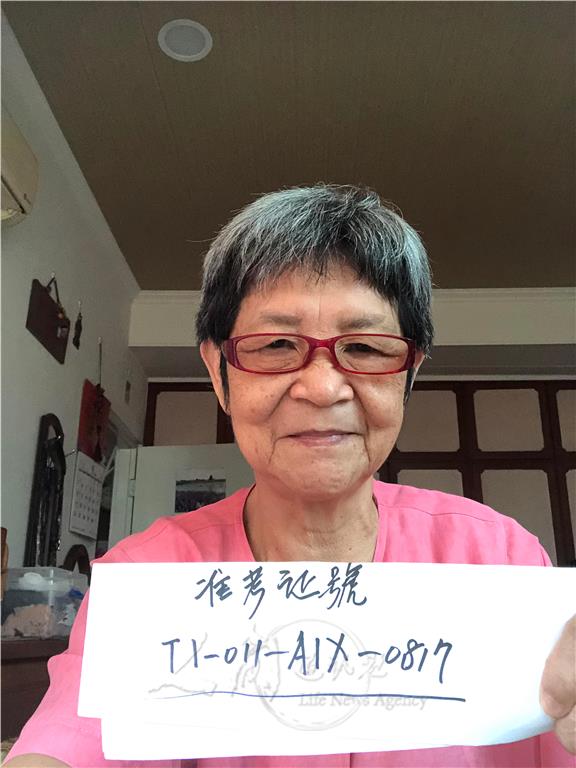 准考证號
T1-011-A1X-0817
Life News Agency